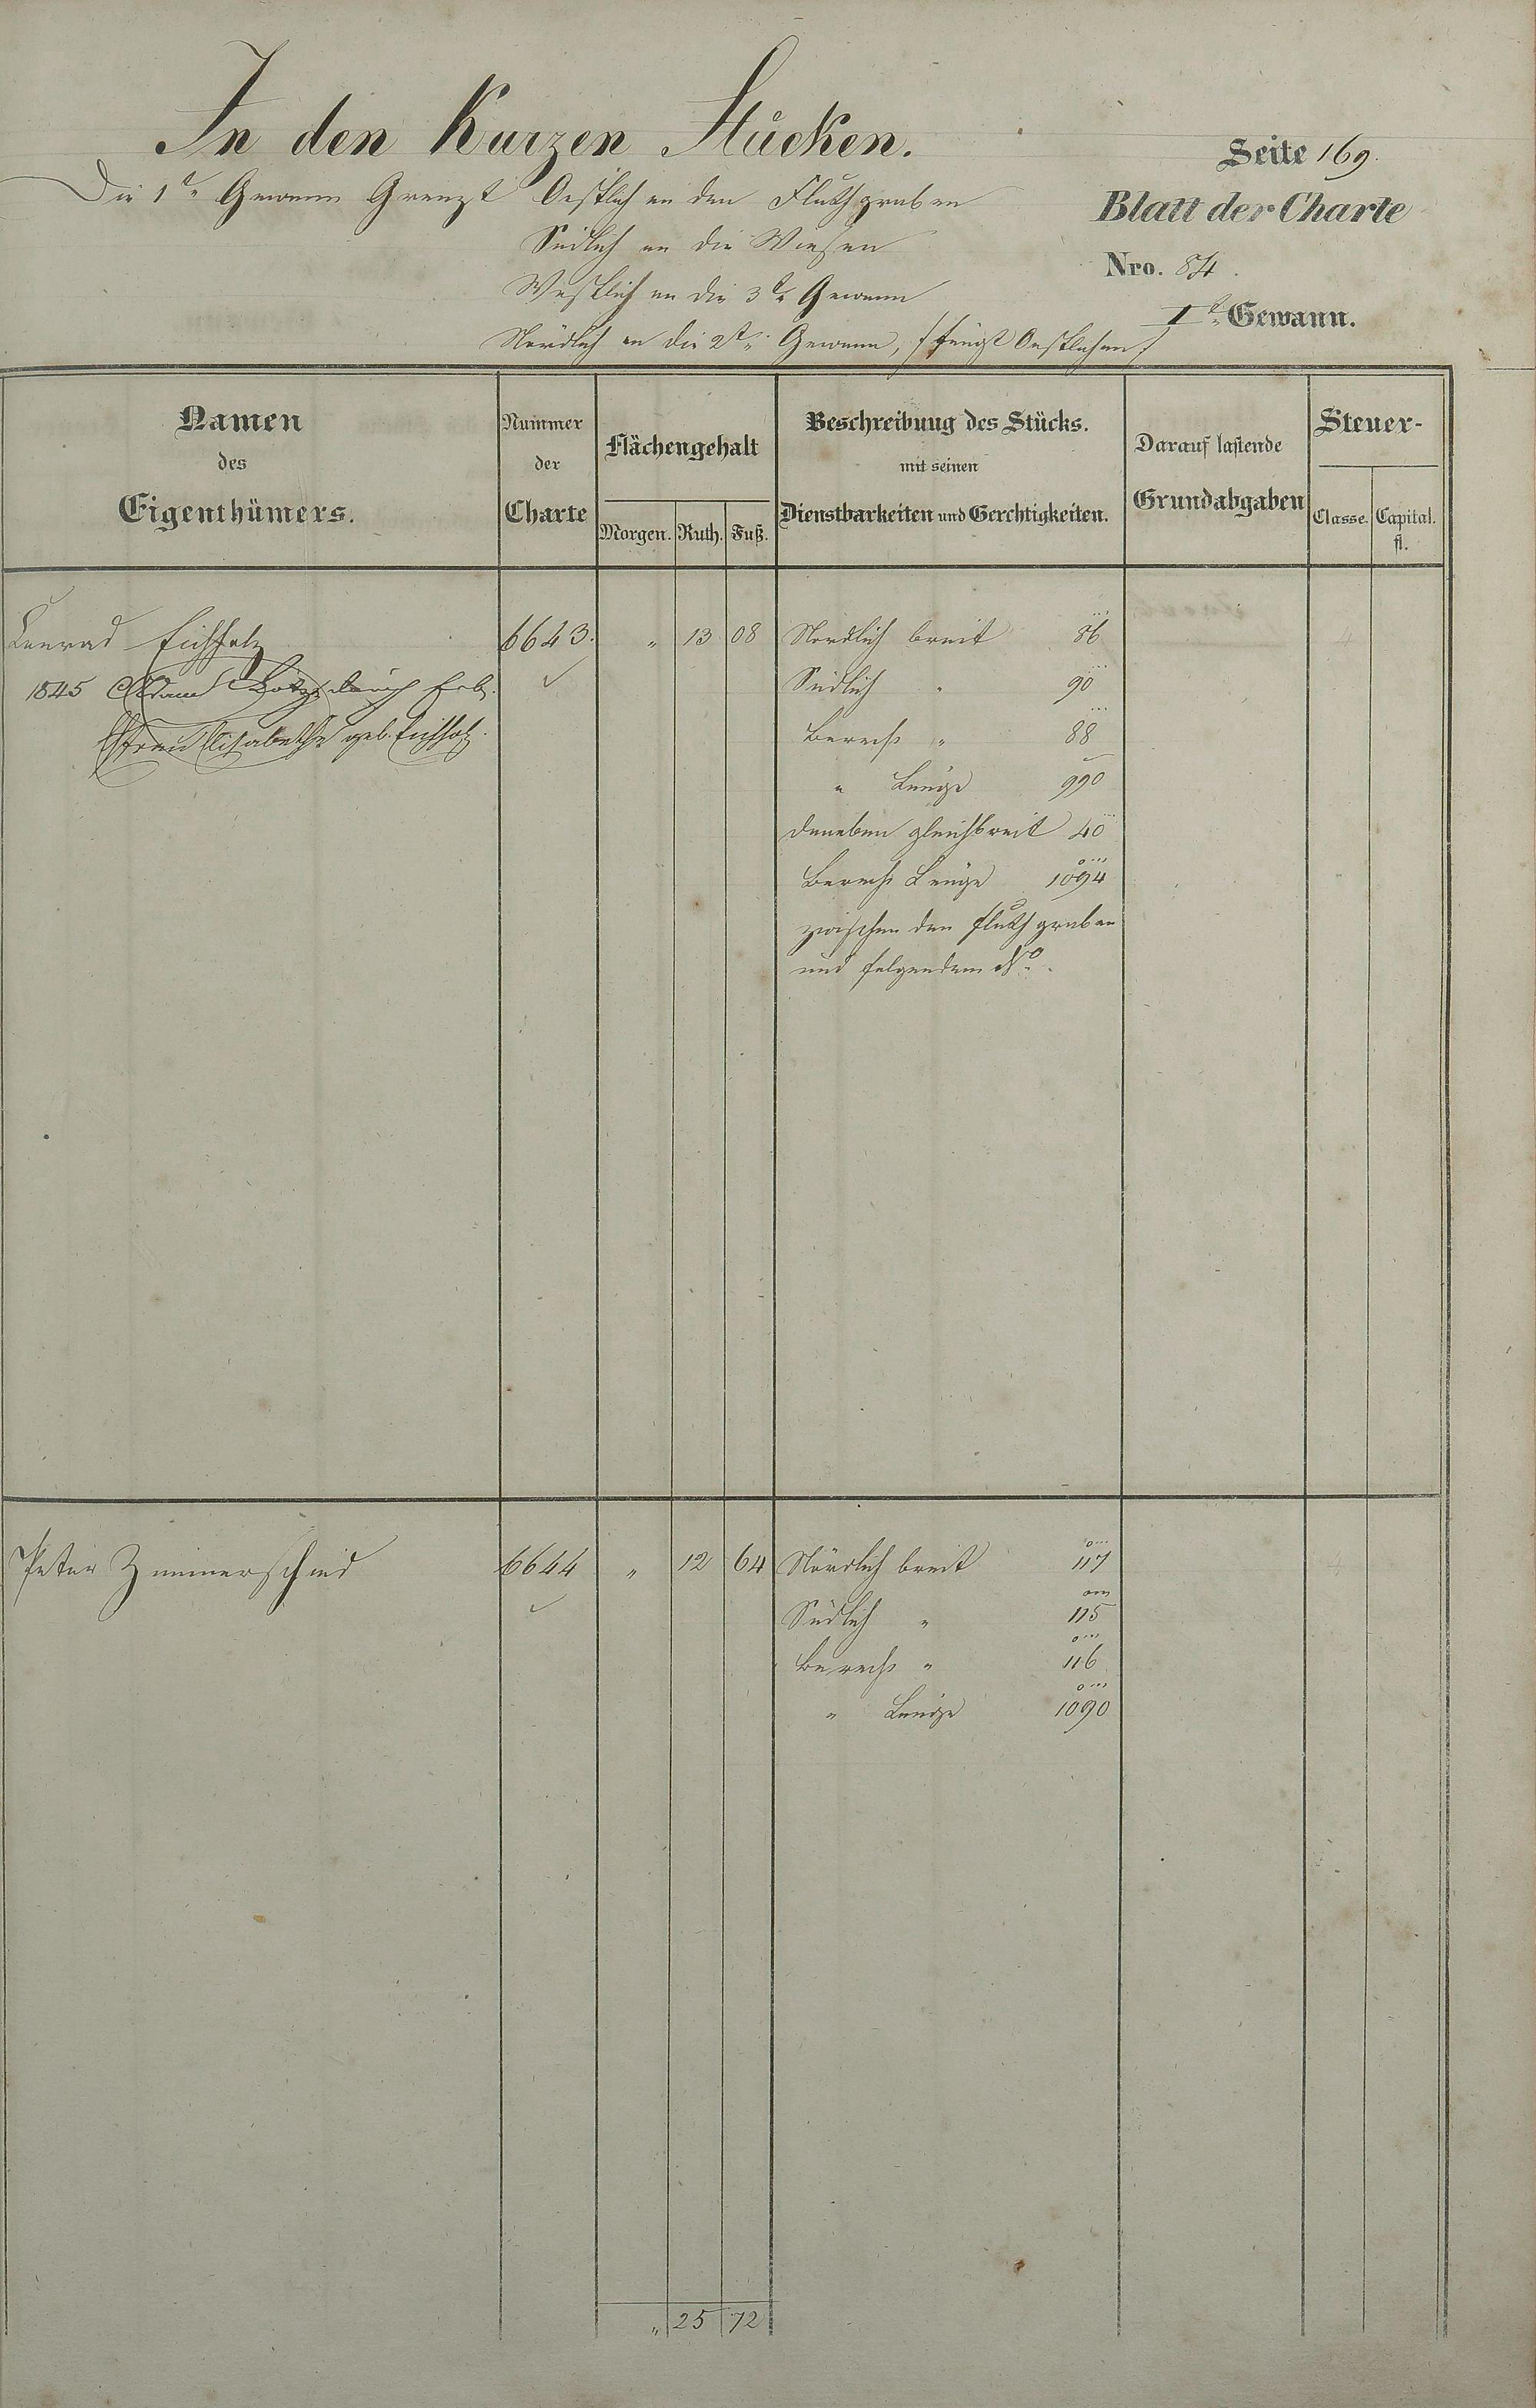 In den Kurzen Stücken.
Seite 169.
Die 1te Gewann Grenzt Oestlich an den Fluthgraben
Blatt der Charte
Südlich an die Wiesen
Nro. 84.
Westlich an die 3te Gewann
Ite Gewann.
Nördlich an die 2te Gewann, /: fängt Oestlich an :/
Namen
des
Eigenthümers.
Nummer
der
Charte
Flächengehalt
Morgen. Ruth. Fuß.
Beschreibung des Stücks.
mit seinen
Dienstbarkeiten und Gerchtigkeiten.
Darauf lastende
Grundabgaben
Steuer-
Classe. Capital.
fl.
Conrad Eichholz 6643. " 13 08 Nordlich breit 86
1845 Adam durch Erb. Südlich " 90
Ehefrau Elisabethe geb. Eichholz. Berech " 88
" Länge 990
daneben gleichbreit 40
Berech Länge 1094
zwischen den Fluthgraben
und folgendem No.
Peter Zimmerschied 6644 " 12 64 Nördlich breit 117
Südlich " 115
Berech " 116
" Länge 1090
" 25 72